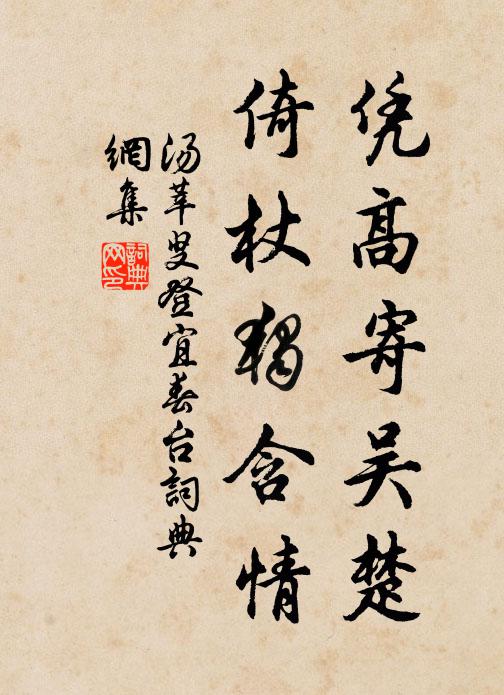 凭高寄吴楚
倚杖独含情
汤莘叟登宜春台詞典
網集
詞典
网印